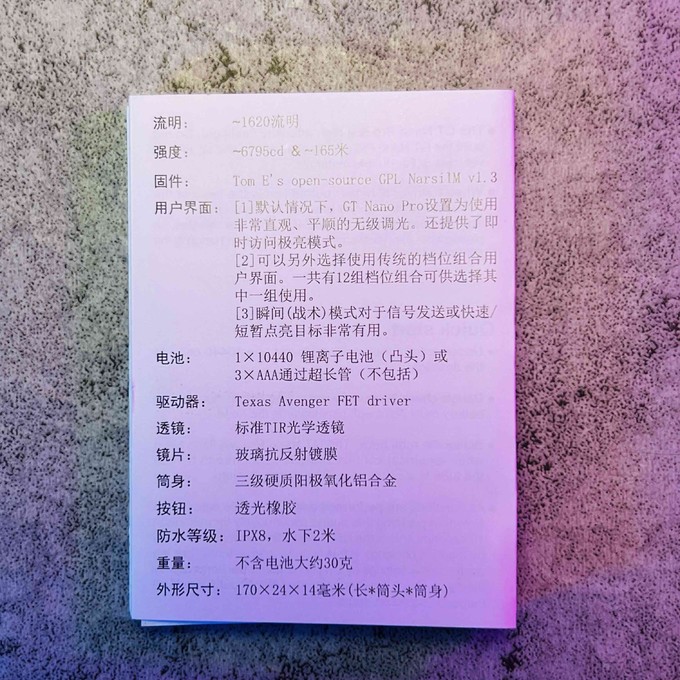 流明： ~1620流明
强度： ~6795cd & ~165米
固件： Tom E's open-source GPL NarsilM v1.3
用户界面： [1]默认情况下，GT Nano Pro设置为使用
非常直观、平顺的无级调光。还提供了即
时访问极亮模式。
[2]可以另外选择使用传统的档位组合用
户界面。一共有12组档位组合可供选择其
中一组使用。
[3]瞬间(战术)模式对于信号发送或快速/
短暂点亮目标非常有用。
电池： 1×10440 锂离子电池（凸头）或
3×AAA通过超长管（不包括）
驱动器： Texas Avenger FET driver
透镜： 标准TIR光学透镜
镜片： 玻璃抗反射镀膜
筒身： 三级硬质阳极氧化铝合金
按钮： 透光橡胶
防水等级： IPX8，水下2米
重量： 不含电池大约30克
外形尺寸： 170×24×14毫米(长*筒头*筒身)